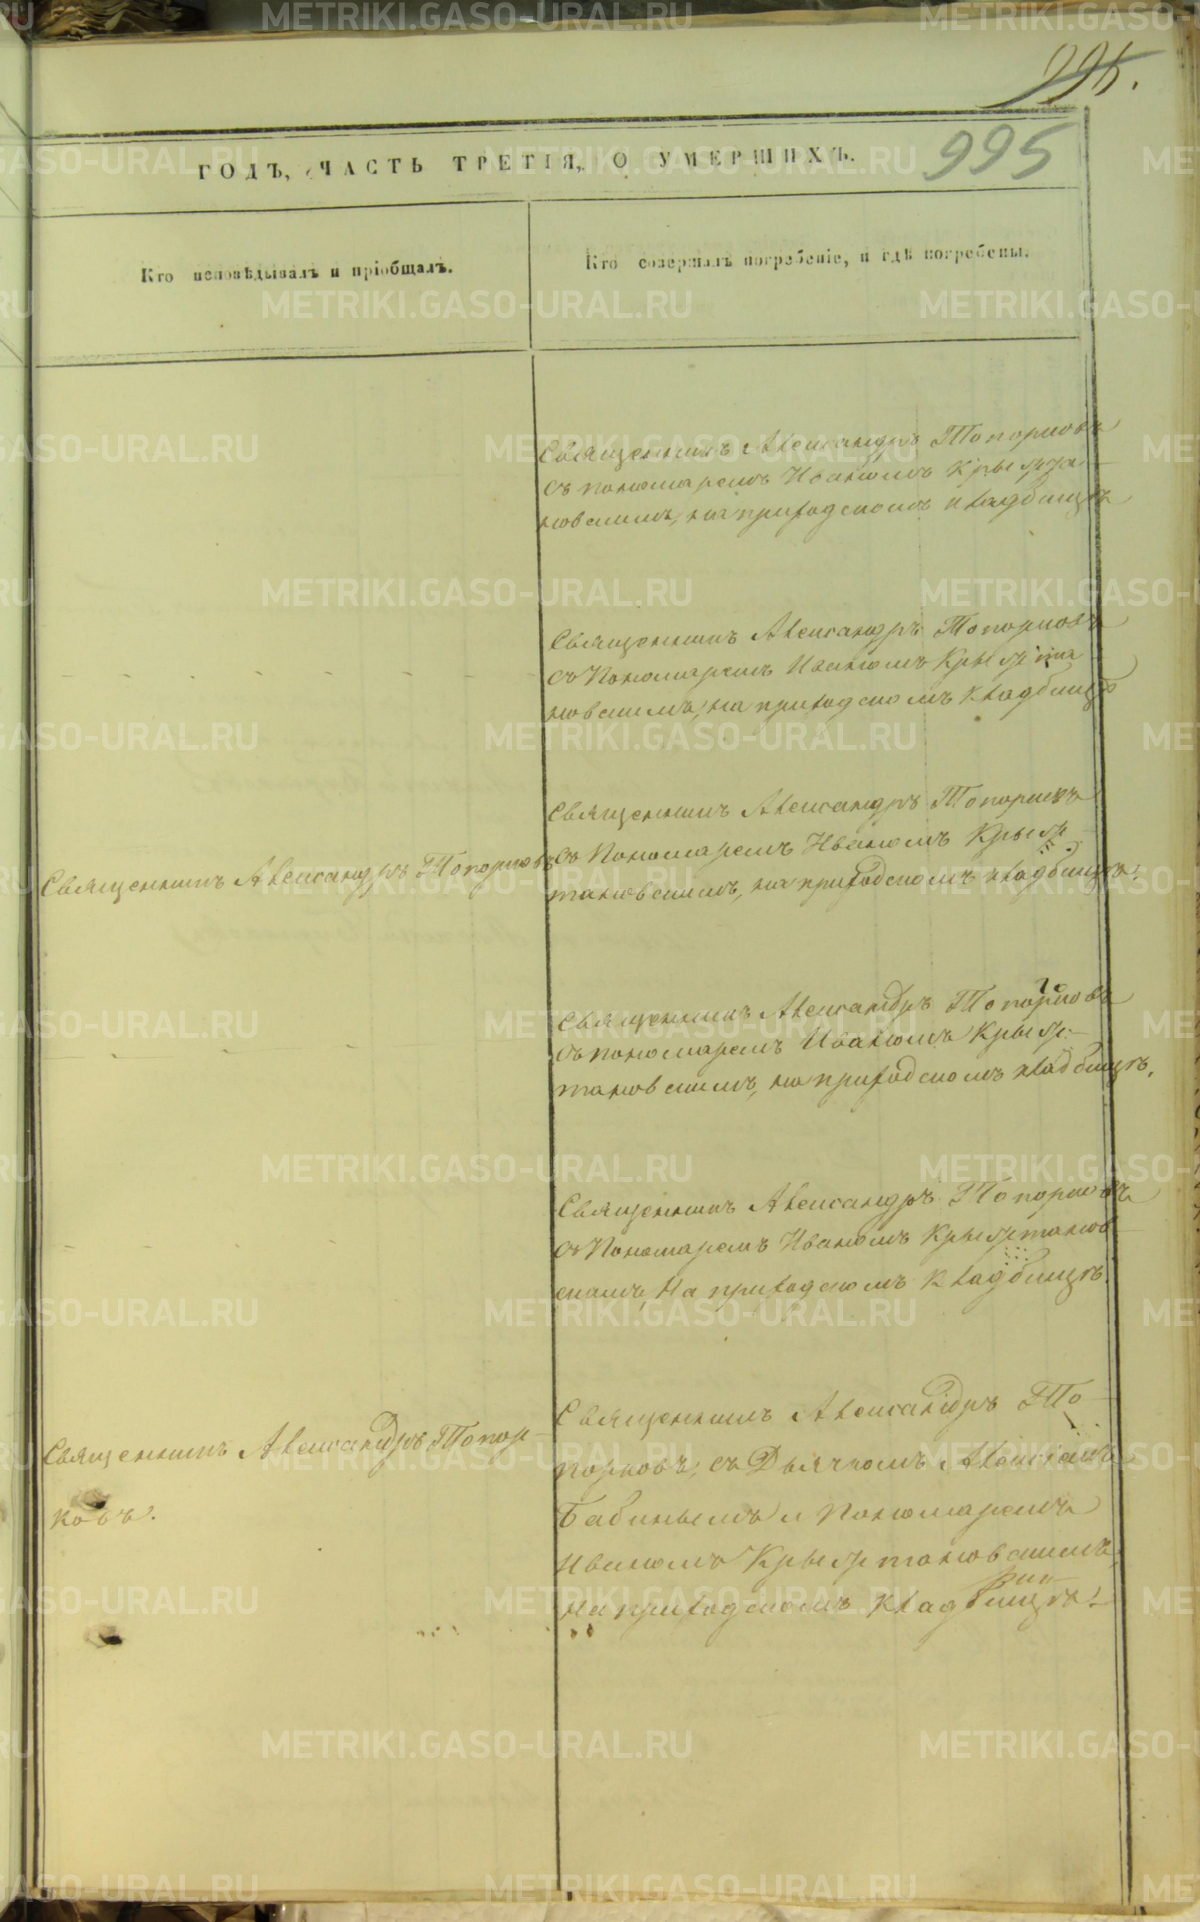 995.
995
ГОДЪ, ЧАСТЬ ТРЕТІЯ, О УМЕРШИХЪ.
Кто исповѣдывалъ и пріобщалъ.
Кто совершалъ погребеніе, и гдѣ погребены.
Священникъ Александръ Топорковъ
съ пономаремъ Иваномъ Крыжа
новскимъ, на приходскомъ кладбищѣ
Священникъ Александръ Топорковъ
съ Пономаремъ Иваномъ
новскимъ, на приходскомъ кладбищѣ
Священникъ Александръ Топорковъ
Священникъ Александръ Топорковъ
съ Пономаремъ Иваномъ
тановскимъ, на приходскомъ кладбищѣ.
Священникъ Александръ Топорковъ
съ пономаремъ Иваномъ
тановскимъ, на приходскомъ кладбищѣ.
Священникъ Александръ Топорковъ
съ Пономаремъ Иваномъ
скимъ, На приходскомъ кладбищѣ.
Священникъ Александръ Топор
ковъ.
Священникъ Александръ То
порковъ, съ Дьячкомъ Алексіемъ
Бабинымъ и Пономаремъ
Иваномъ
На приходскомъ кладбищѣ.
METRIKI.GASO-URAL.RU